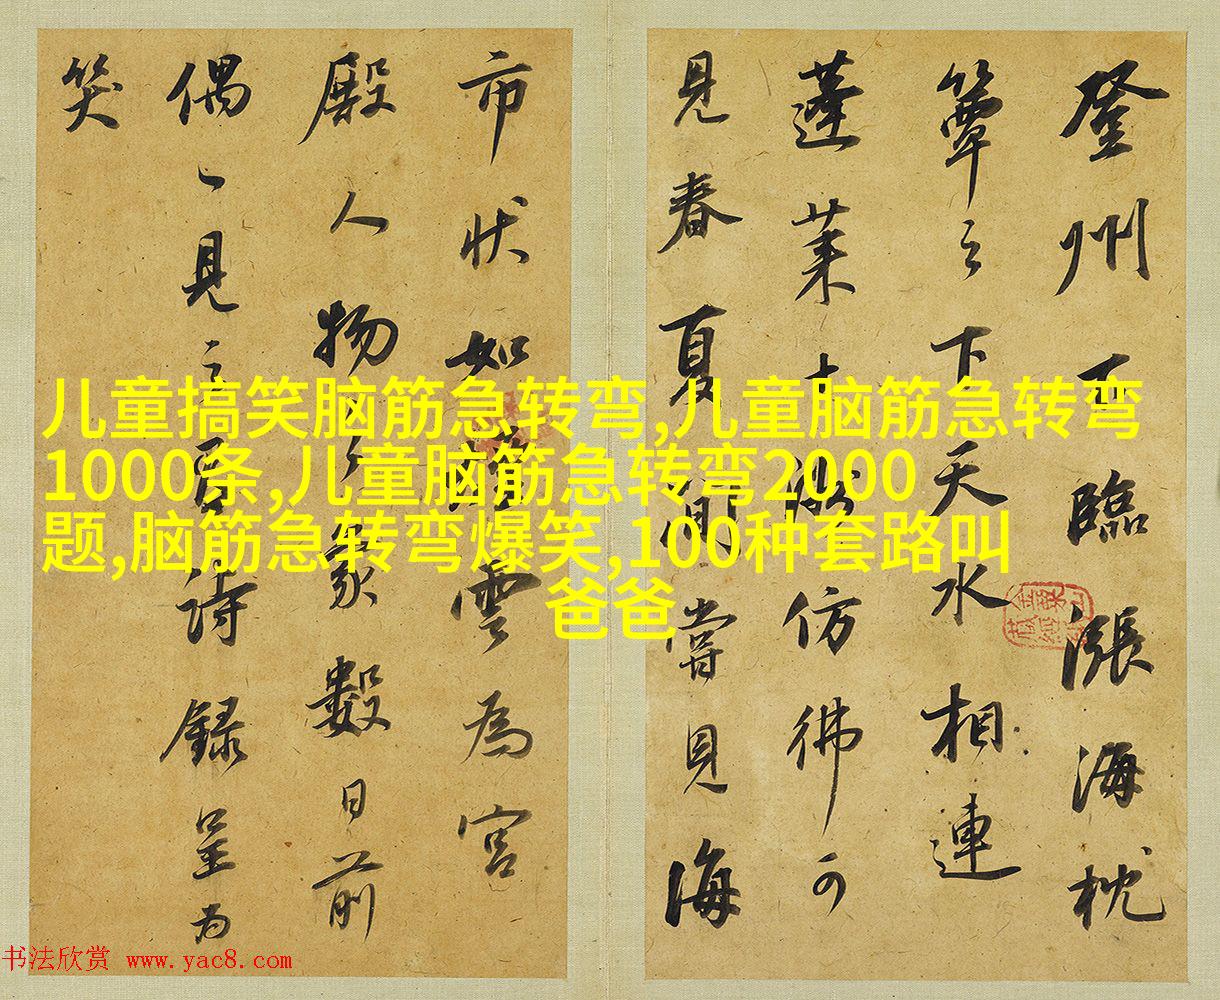 登州下臨漲海枕
簟之下天水相連
蓬莱十仿彿可
見春夏間嘗見海
市状如雲為宮
殿人物之象數日前
偶〻見之詩録呈为
笑
儿童搞笑脑筋急转弯,儿童脑筋急转弯
1000条,儿童脑筋急转弯2000
题,脑筋急转弯爆笑,100种套路叫
爸爸
书法欣赏 www.yac8.com